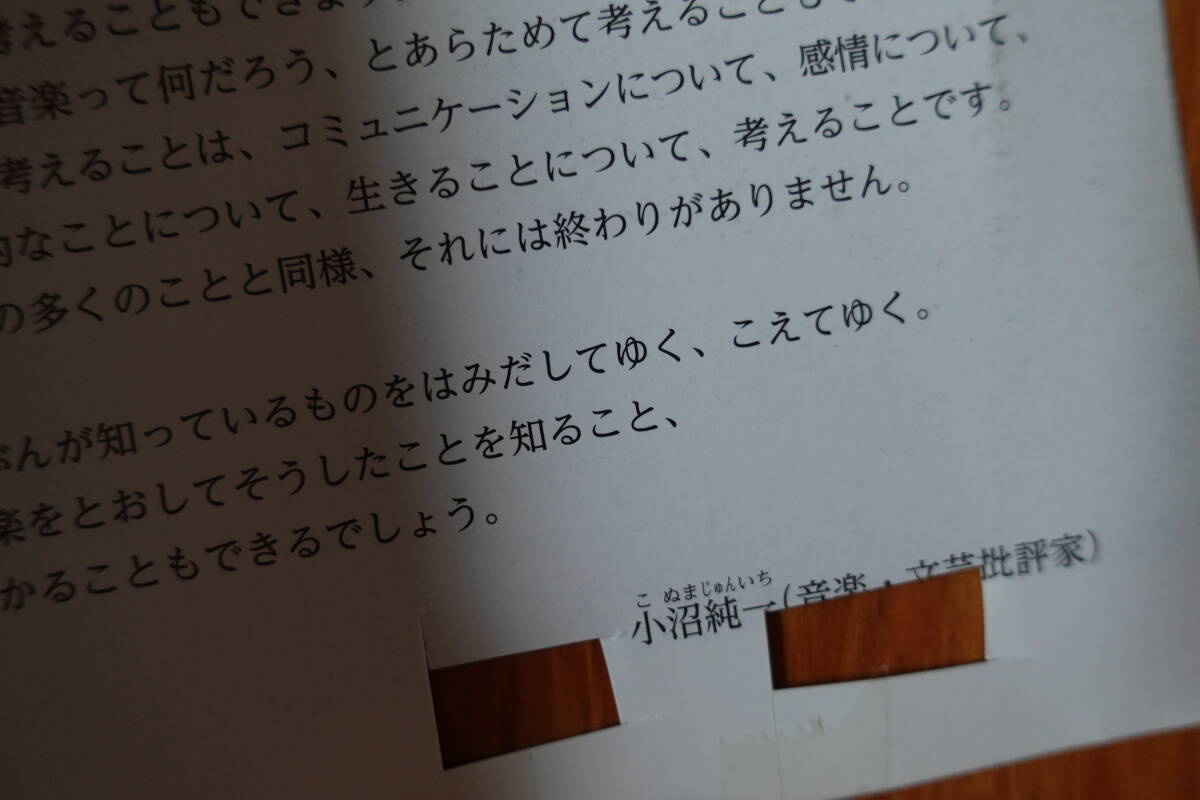 考えることもできます
音楽って何だろう、とあらためて考えることも
考えることは、コミュニケーションについて、感情について、
的なことについて、生きることについて、考えることです。
の多くのことと同様、それには終わりがありません。
ぶんが知っているものをはみだしてゆく、こえてゆく。
楽をとおしてそうしたことを知ること、
かることもできるでしょう。
こ ぬまじゅんいち
小沼純一(音楽・文芸批評家)